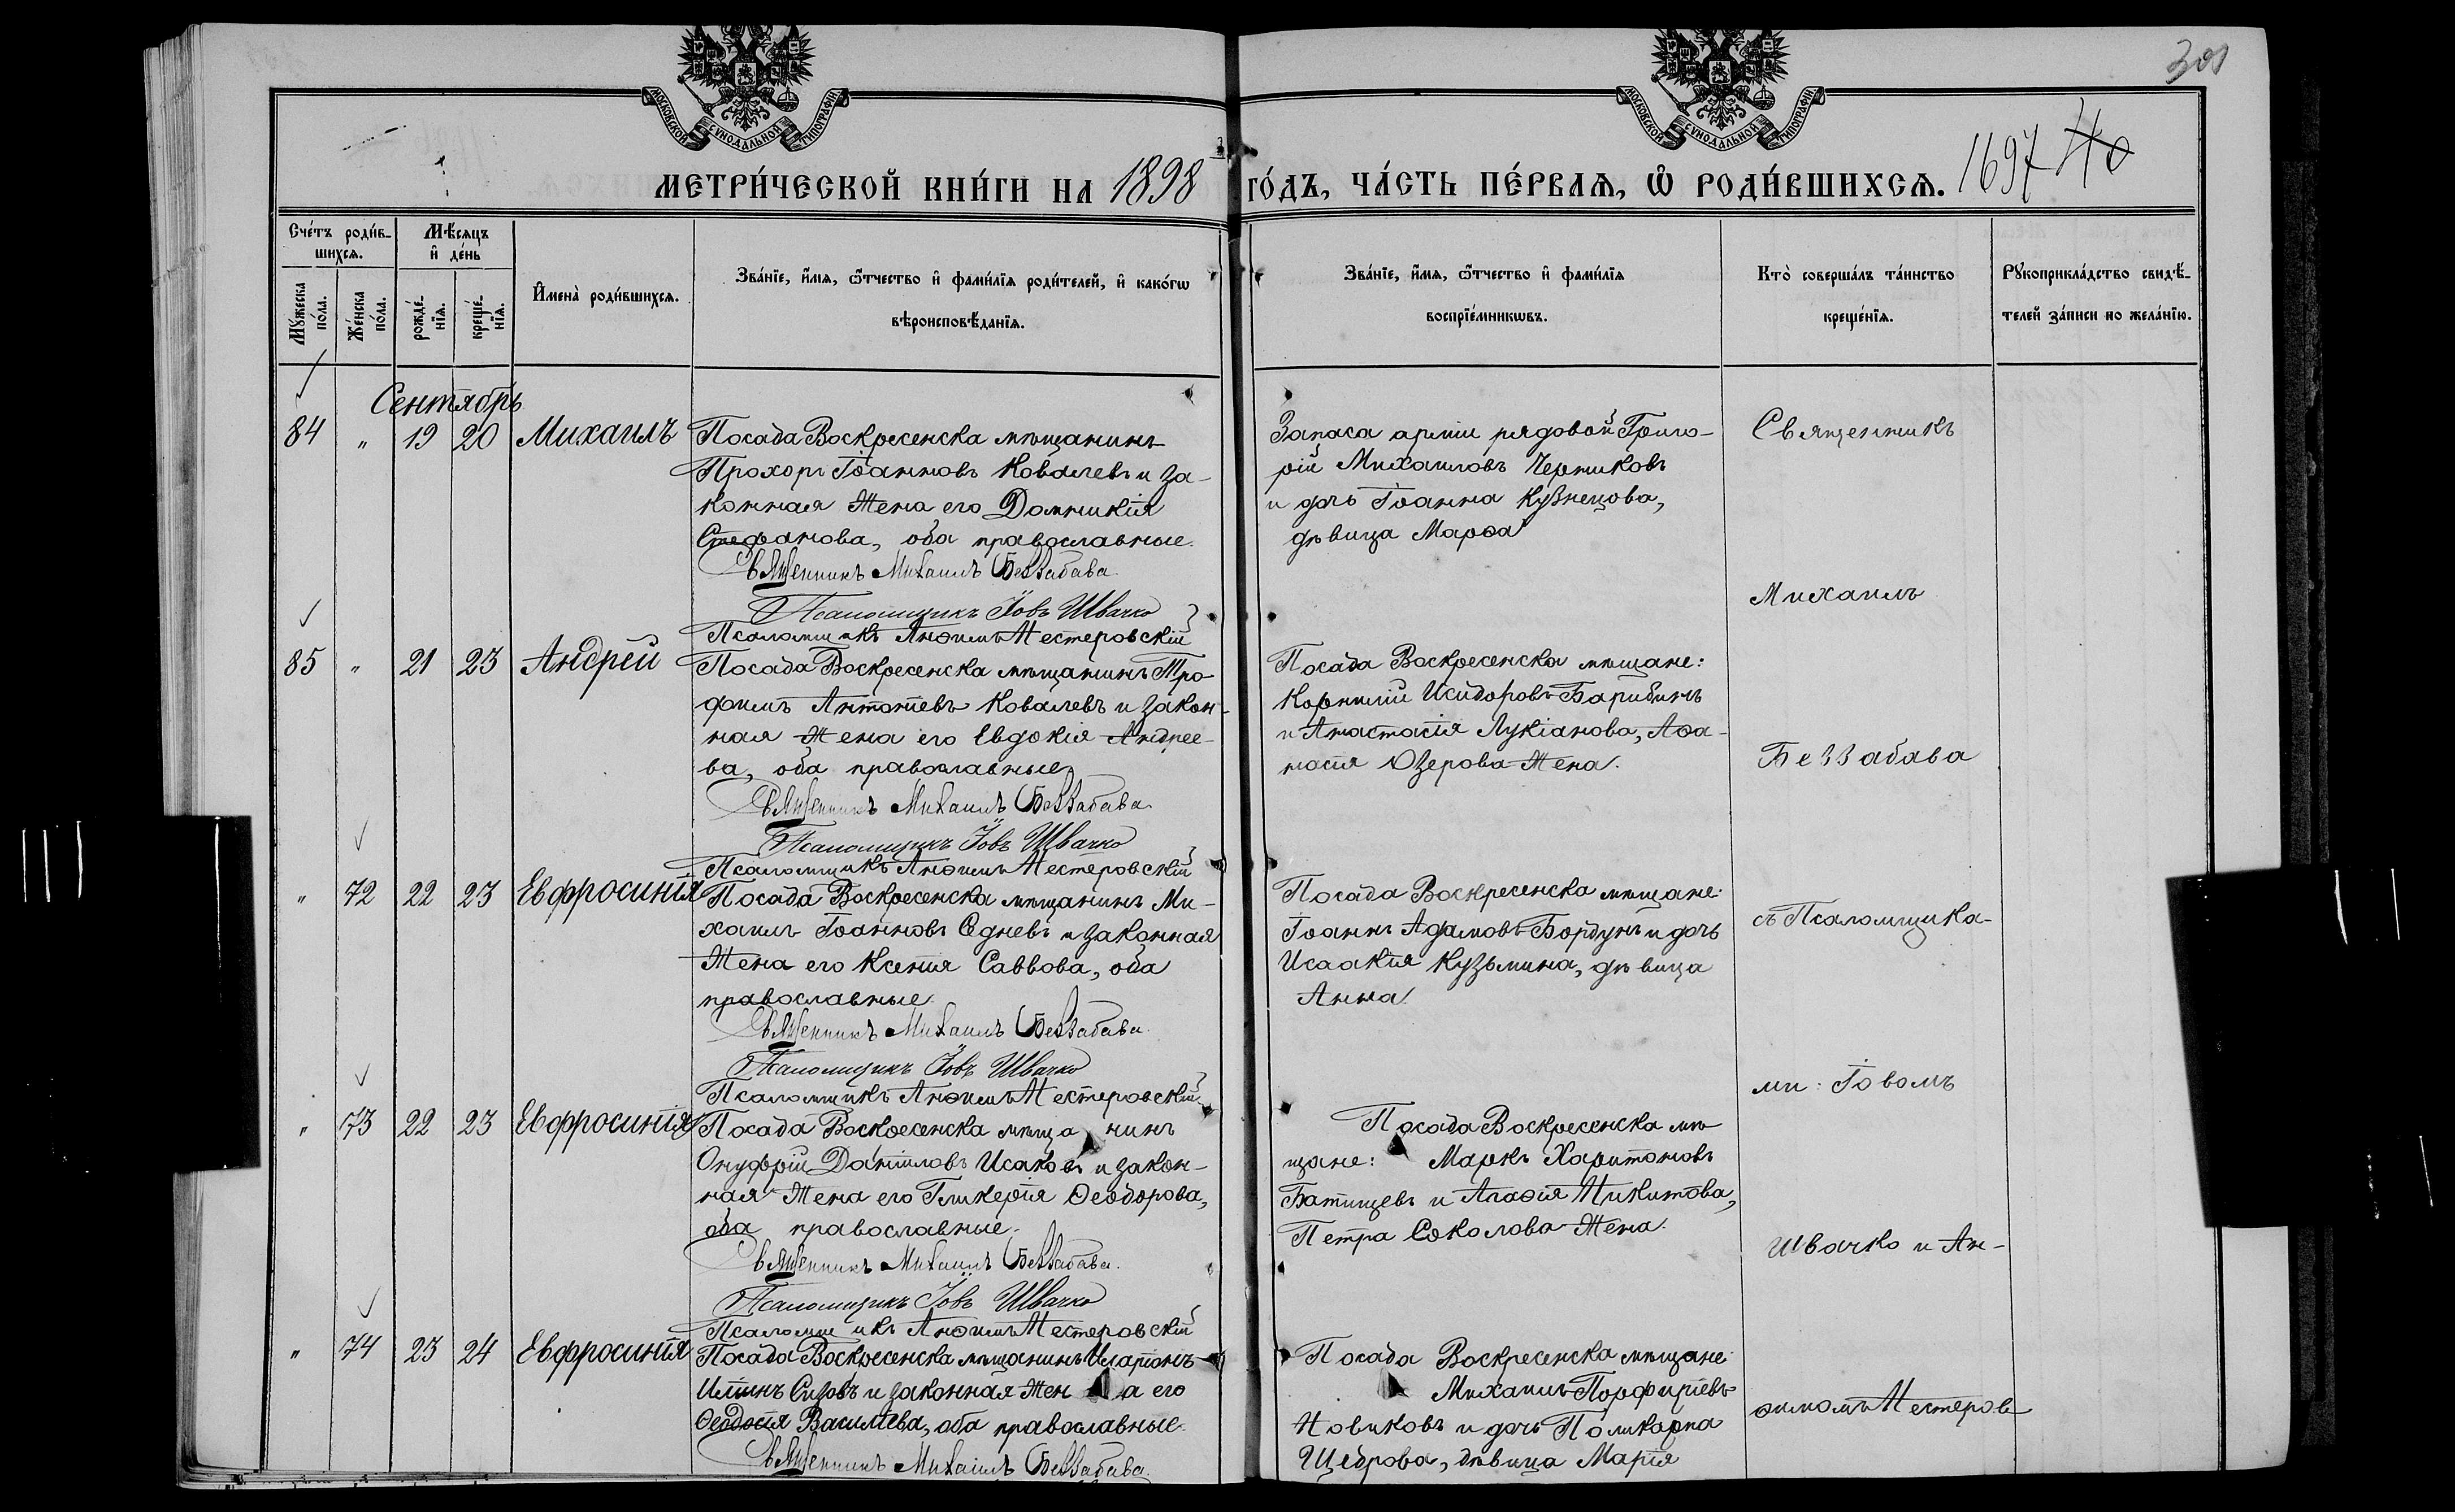 301
МОСКОВСКОЙ СУНОДАЛЬНОЙ ТИПОГРАФІИ
МОСКОВСКОЙ СУНОДАЛЬНОЙ ТИПОГРАФІИ
МЕТРИ́ЧЕСКОЙ КНИ́ГИ НА 1898 ГО́ДЪ, ЧА́СТЬ ПЕ́РВАЯ, Ѡ РОДИ́ВШИХСЯ. 1697 40
Сче́тъ роди́в-
шихся.
Мѣ́сяцъ
и де́нь
Му́жеска
по́ла.
Же́нска
по́ла.
рожде́-
нїя.
креще́-
нїя.
Имена̀ роди́вшихся.
Зва́нїе, и́мя, ѻ́тчество и фами́лїя роди́телей, и како́гѡ
вѣроисповѣ́данїя.
Зва́нїе, и́мя, ѻ́тчество и фами́лїя
воспрїе́мникѡвъ.
Кто̀ соверша́лъ та́инство
креще́нїя.
Рукоприкла́дство свидѣ́-
телей за́писи по жела́нїю.
Сентябрь
84 " 19 20 Михаилъ
Посада Воскресенска мѣщанинъ
Прохоръ Іоанновъ Ковалевъ и за-
конная жена его Домникія
Стефанова, оба православные.
Священникъ Михаилъ Беззабава.
Псаломщикъ Іовъ Швачко
Псаломщикъ Анѳимъ Нестеровскій
Запаса арміи рядовой Григо-
рій Михаиловъ Черниковъ
и дочь Іоанна Кузнецова,
дѣвица Марѳа
Священникъ
Михаилъ
85 " 21 23 Андрей
Посада Воскресенска мѣщанинъ Тро-
фимъ Антоніевъ Ковалевъ и закон-
ная жена его Евдокія Андрее-
ва, оба православные
Священникъ Михаилъ Беззабава.
Псаломщикъ Іовъ Швачко
Псаломщикъ Анѳимъ Нестеровскій
Посада Воскресенска мѣщане:
Корнилій Исидоровъ Барибинъ
и Анастасія Лукіанова, Аѳа-
насія Озерова жена.
Беззабава
" 72 22 23 Евфросинія
Посада Воскресенска мѣщанинъ Ми-
хаилъ Іоанновъ Седневъ и законная
жена его Ксенія Саввова, оба
православные.
Священникъ Михаилъ Беззабава.
Псаломщикъ Іовъ Швачко
Псаломщикъ Анѳимъ Нестеровскій
Посада Воскресенска мѣщане:
Іоаннъ Адамовъ Бордунъ и дочь
Исаакія Кузьмина, дѣвица
Анна.
съ Псаломщика-
ми: Іовомъ
" 73 22 23 Евфросинія
Посада Воскресенска мѣщанинъ
Онуфрій Даніиловъ Исаковъ и закон-
ная жена его Гликерія Ѳеодорова,
оба православные.
Священникъ Михаилъ Беззабава.
Псаломщикъ Іовъ Швачко
Псаломщикъ Анѳимъ Нестеровскій
Посада Воскресенска мѣ-
щане: Маркъ Харитоновъ
Батищевъ и Агаѳія Никитова,
Петра Соколова жена.
Швачко и Ан-
" 74 23 24 Евфросинія
Посада Воскресенска мѣщанинъ Иларіонъ
Иліинъ Сизовъ и законная жена его
Ѳеодосія Василіева, оба православные.
Священникъ Михаилъ Беззабава.
Посада Воскресенска мѣщане
Михаилъ Порфиріевъ
Новиковъ и дочь Поликарпа
Щедрова, дѣвица Марія
ѳимомъ Нестеров-